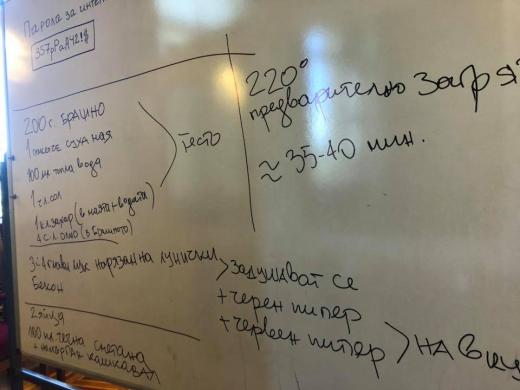 Парола за интерн
200 г. БРАШНО
1 пакетче суха мая
100 мл топла вода
1 ч.л сол
1 к.л захар (в маята + водата)
4 с.л. олио (в брашното)
Тесто
3-4 глави лук нарязан на лунички
Бекон
Задушават се
+ черен пипер
+ червен пипер
НА ВКУ
2 яйца
100 мл. течна сметана
+ кашкавал
220°
предварително загря
≈ 35-40 мин.